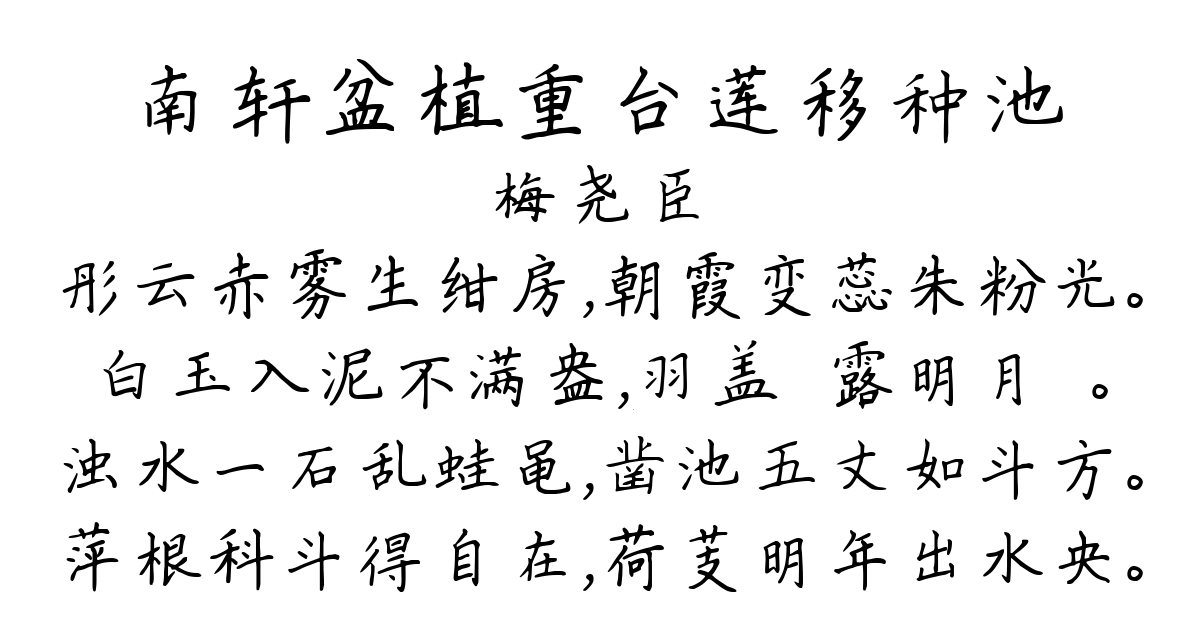 南轩盆植重台莲移种池
梅尧臣
彤云赤雾生绀房,朝霞变蕊朱粉光。
白玉入泥不满盎,羽盖 露明月 。
浊水一石乱蛙黾,凿池五丈如斗方。
萍根科斗得自在,荷芰明年出水央。